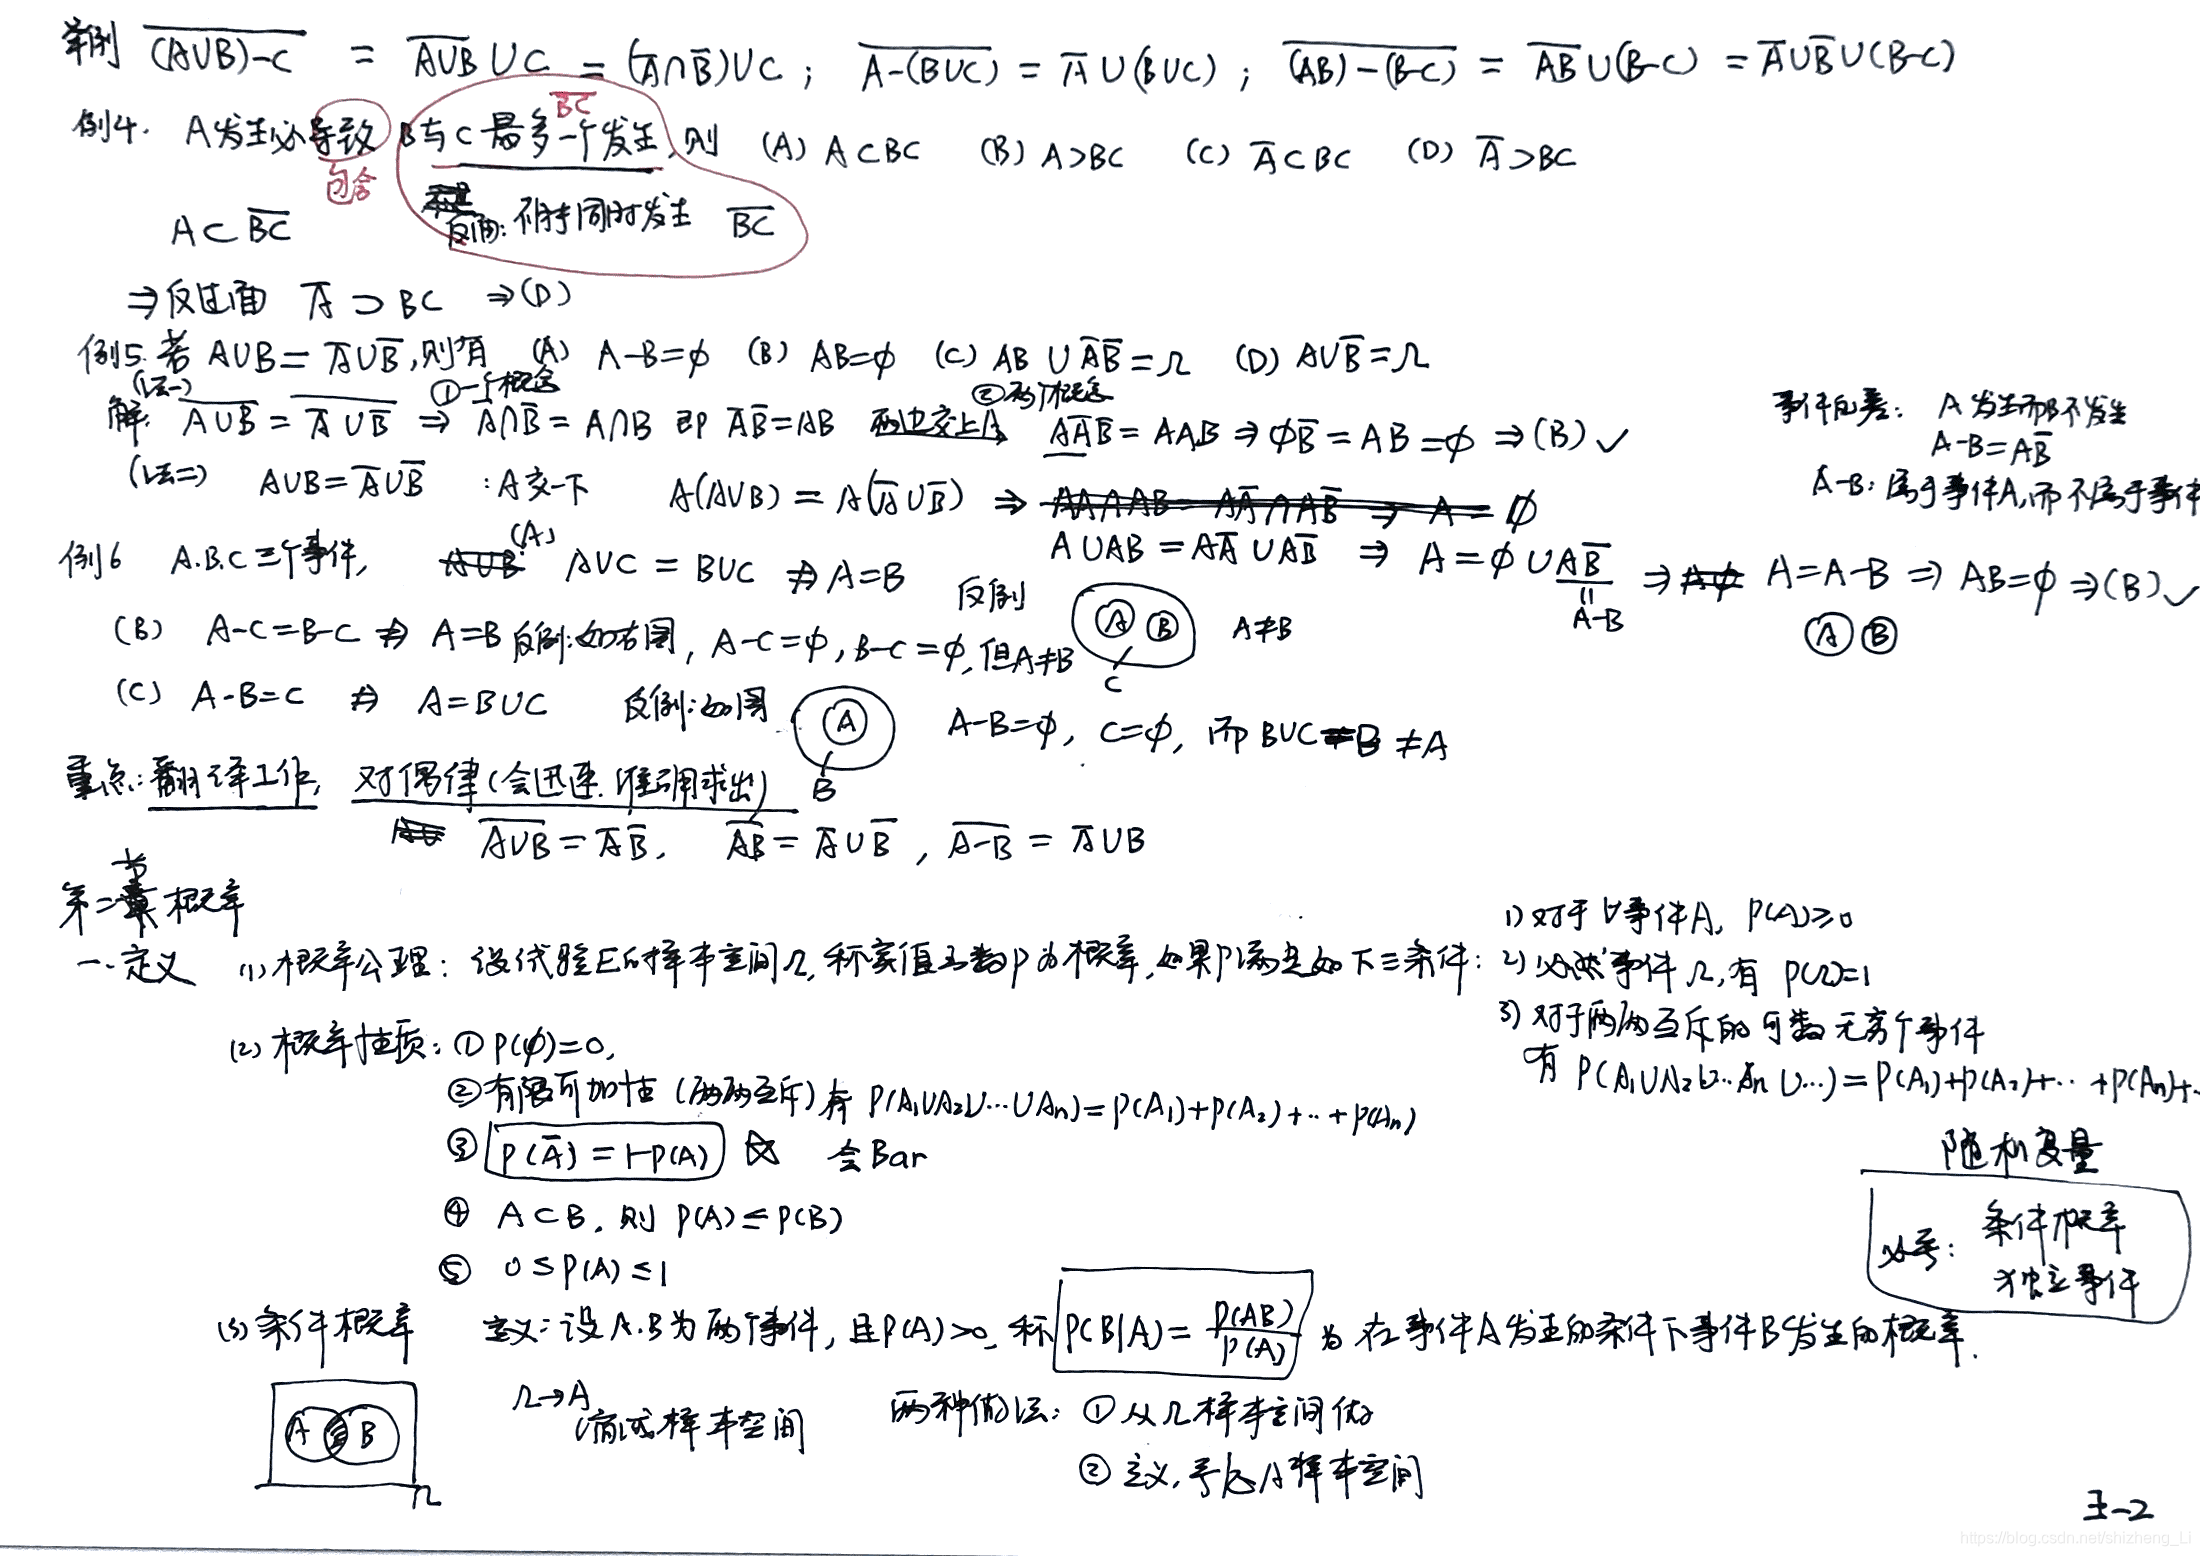 举例 \overline{(A∪B)-C} = \overline{A∪B}∪C = (\overline{A}∩\overline{B})∪C ; \overline{A-(B∪C)} = \overline{A}∪(B∪C) ; \overline{(AB)-(B-C)} = \overline{AB}∪(B-C) = \overline{A}∪\overline{B}∪(B-C)
\overline{BC}
例4. A发生必导致 B与C最多一个发生,则 (A) A⊂BC (B) A⊃BC (C) \overline{A}⊂BC (D) \overline{A}⊃BC
包含
A⊂\overline{BC} 反面: 同时发生 \overline{BC}
⇒反过面 \overline{A}⊃BC ⇒(D)
例5.若 A∪B=\overline{A}∪\overline{B},则有 (A) A-B=φ (B) AB=φ (C) AB∪\overline{A}\overline{B}=Ω (D) A∪\overline{B}=Ω
(法一) ①一个概念 ②两个概念
解: \overline{A∪B}=\overline{\overline{A}∪\overline{B}} ⇒ \overline{A}∩\overline{B}=A∩B 即 \overline{A}\overline{B}=AB 两边交上A A\overline{A}\overline{B}=AAB ⇒ φ\overline{B}=AB=φ ⇒(B) ✓
事件的差: A发生而B不发生
A-B=A\overline{B}
A-B: 属于事件A,而不属于事件
(法二) A∪B=\overline{A}∪\overline{B} :A交一下 A(A∪B)=A(\overline{A}∪\overline{B}) ⇒
A∪AB=A\overline{A}∪A\overline{B} ⇒ A=φ∪A\overline{B} ⇒ A=A-B ⇒ AB=φ ⇒(B) ✓
A-B
A B
例6 A.B.C三个事件, (A) A∪C=B∪C ⇏ A=B 反例 A B C A≠B
(B) A-C=B-C ⇏ A=B 反例:如右图, A-C=φ, B-C=φ, 但A≠B
(C) A-B=C ⇏ A=B∪C 反例:如图 A B A-B=φ, C=φ, 而 B∪C=B≠A
重点:翻译工作, 对偶律(会迅速.准确求出)
\overline{A∪B}=\overline{A}\overline{B}, \overline{AB}=\overline{A}∪\overline{B}, \overline{A-B}=\overline{A}∪B
第二节 概率
一.定义 (1) 概率公理: 设试验E的样本空间Ω,称实值函数P为概率,如果P满足如下三条件:
1) 对于∀事件A, P(A)≥0
2) 必然事件Ω,有 P(Ω)=1
3) 对于两两互斥的可数无穷个事件
有 P(A₁∪A₂∪…An∪…)=P(A₁)+P(A₂)+…+P(An)+…
(2) 概率性质: ① P(φ)=0,
② 有限可加性 (两两互斥) 有 P(A₁∪A₂∪…∪An)=P(A₁)+P(A₂)+…+P(An)
③ P(\overline{A})=1-P(A) ☆ 会Bar
④ A⊂B, 则 P(A)≤P(B)
⑤ 0≤P(A)≤1
随机变量
必考: 条件概率
独立事件
(3) 条件概率 定义:设A.B为两个事件, 且P(A)>0, 称 P(B|A)=P(AB)/P(A) 为在事件A发生的条件下事件B发生的概率.
A B Ω
Ω→A
缩减样本空间
两种做法: ① 从Ω样本空间做
② 定义,考虑A样本空间
王-2
https://blog.csdn.net/shizheng_Li